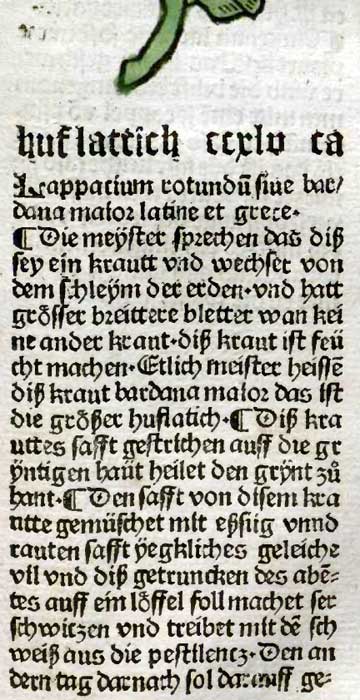 huflattich ccxlv ca
Lappacium rotundū siue bar/
dana maior latine et grece·
¶ Die meyſter ſprechen das diß
ſey ein krautt vnd wechſet von
dem ſchleym der erden·vnd hatt
größſer breittere bletter wan kei
ne ander kraut·diß kraut iſt feü
cht machen·Etlich meiſter heiſſē
diß kraut bardana maior das iſt
die größer huflatich·¶ Diß kra
uttes ſafft geſtrichen auff die gr
ÿntigen haüt heilet den grÿnt zů
hant·¶ Den ſafft von diſem kra
utte gemüſchet mit eßſiig vnnd
rauten ſafft ÿegkliches geleiche
vil vnd diß getruncken des abē=
tes auff ein löffel foll machet ſer
ſchwiczen vnd treibet mit dē ſch
weiß aus die peſtilencz·Den an
dern tag darnach ſol darauff ge=